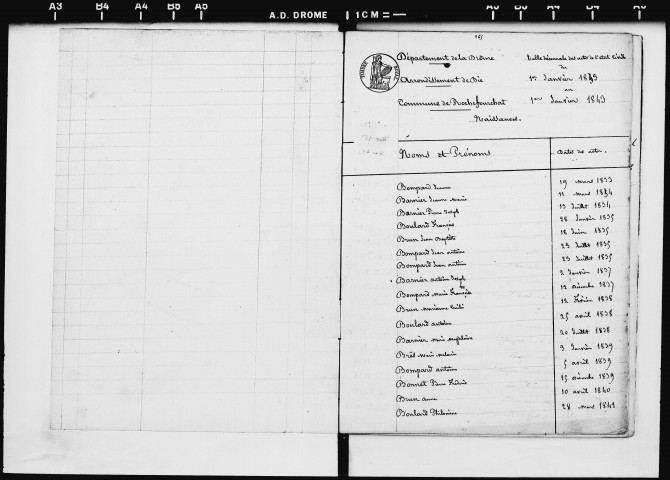 A3 B4 A4 B5 A5 A.D. DROME 1CM A5 B5 A4 B4 A3
Département de la Drôme
Table décennale des actes de l'état civil
du
Arrondissement de Die
1er Janvier 1833
au
Commune de Rochefourchat
1er Janvier 1843
Naissances.
Noms et Prénoms
Dates des actes.
Bompard 19 mars 1833
Barnier Jeanne Marie 11 mars 1834
Barnier Pierre Joseph 13 Juillet 1834
Boulard François 28 Janvier 1835
Brun Jean 18 Juin 1835
Bompard Jean antoine 23 Juillet 1835
Bompard Jean antoine 23 Juillet 1835
Barnier antoine Joseph 2 Janvier 1837
Bompard marie 12 décembre 1837
Brun marianne 12 Février 1838
Boulard antoine 25 avril 1838
Barnier marie 20 Juillet 1838
Brès marie 3 Janvier 1839
Bompard antoine 5 avril 1839
Bonnet Pierre 15 décembre 1839
Brun anne 10 avril 1840
Boulard Philomène 28 mars 1842